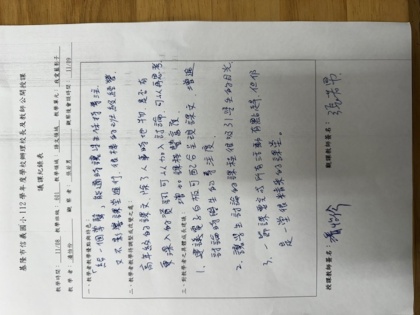 基隆市信義國小 112 學年度學校辦理校長及教師公開授課
議課紀錄表
教學時間： 11/08 教學班級： 601 教學領域： 語文領域 教學單元：
教 學 者： 潘怡伶 觀課者： 張若男 觀課後會談時間： 11/09
一、教學者教學優點與特色：
「給一個掌聲」能適時讓學生保持專注
又不影響課堂進行，很棒的班級經營
二、教學者教學待調整或改變之處：
高年級的課文，除了人事時地物，是否有
更深入的資訊可以加入討論，可以再思考，
增加課程豐富度
三、對教學者之具體成長建議：
1. 建議電子白板可配合呈現課文，增進
討論時學生的專注度
2. 讓學生討論的課程很吸引學生的目光
3. 一節課要完成所有活動有點趕，但仍
是一堂很精采的課堂。
授課教師簽名： 潘怡伶 觀課教師簽名： 張若男